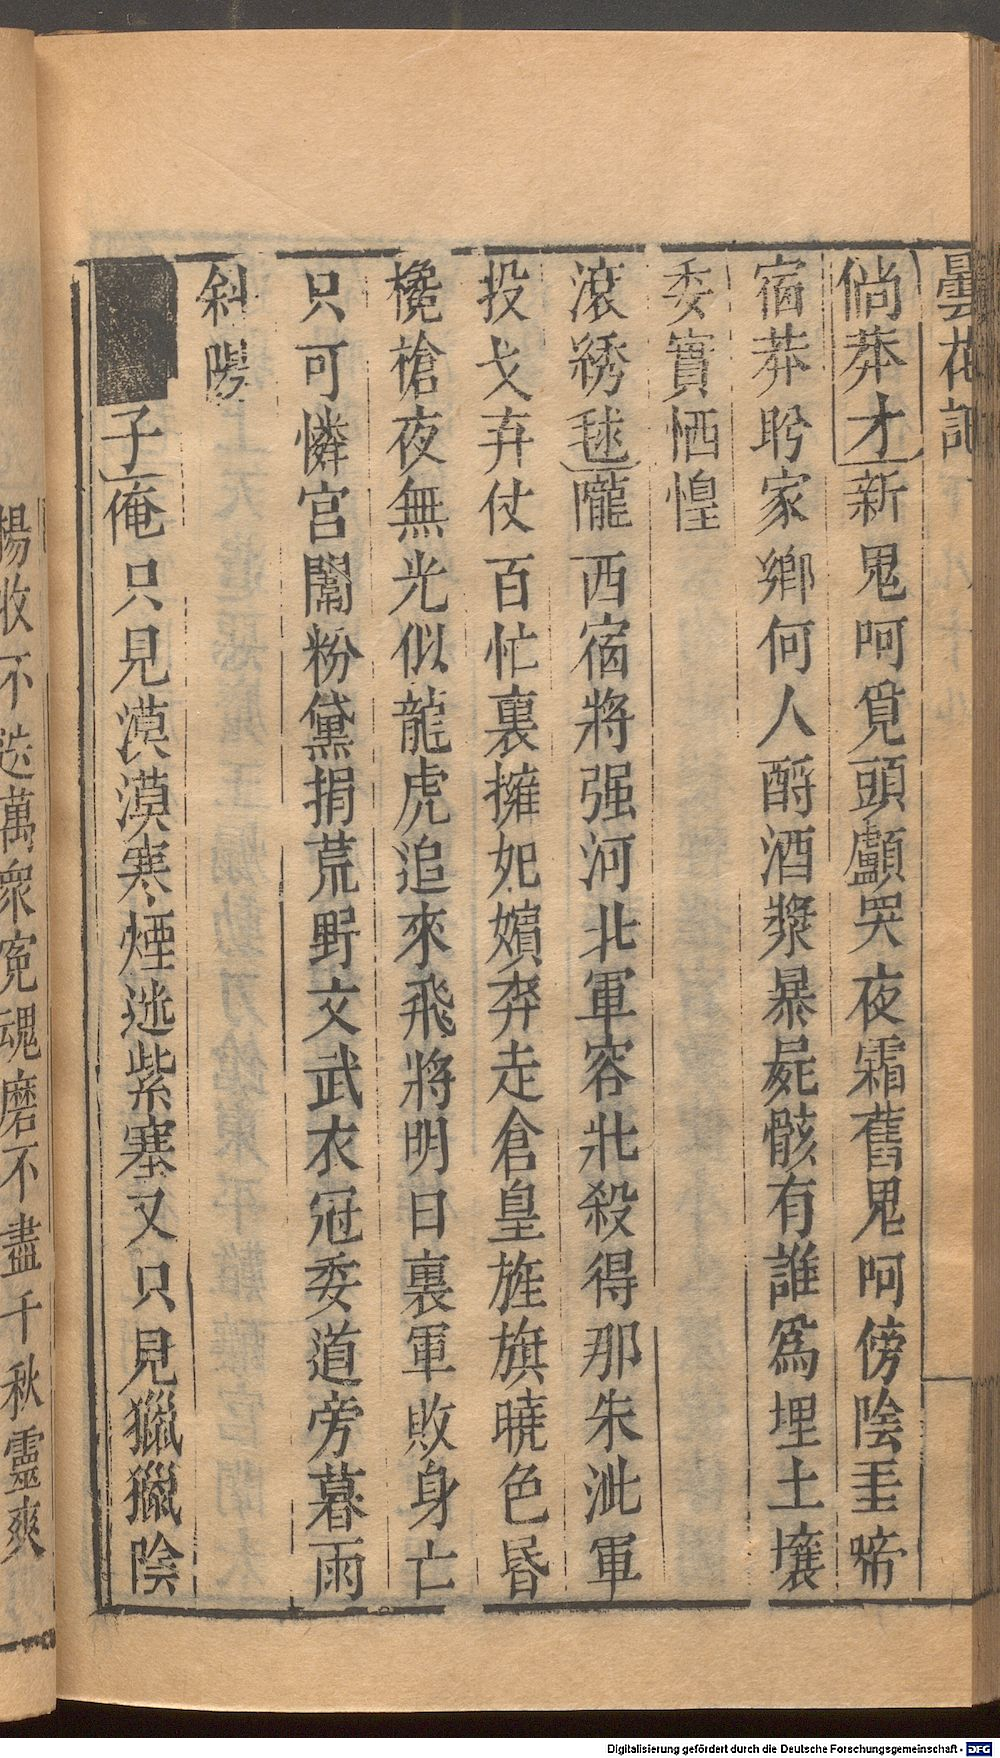 曇花記
倘莽才新鬼呵覓頭顱哭夜霜舊鬼呵傍陰
宿莽盻家鄉何人酹酒漿暴屍骸有誰爲埋土壤
委實恓惶
滾綉毬隴西宿將强河北軍容壯殺得那朱泚軍
投戈弃仗百忙裏擁妃嬪奔走倉皇旌旗曉色昏
欃槍夜無光似龍虎追來飛將明日裏軍敗身亡
只可憐宮闈粉黛捐荒野文武衣冠委道旁暮雨
斜陽
子俺只見漠漠寒煙迷紫塞又只見獵獵陰
楊收不迭萬衆寃魂磨不盡千秋靈爽
Digitalisierung gefördert durch die Deutsche Forschungsgemeinschaft - DFG